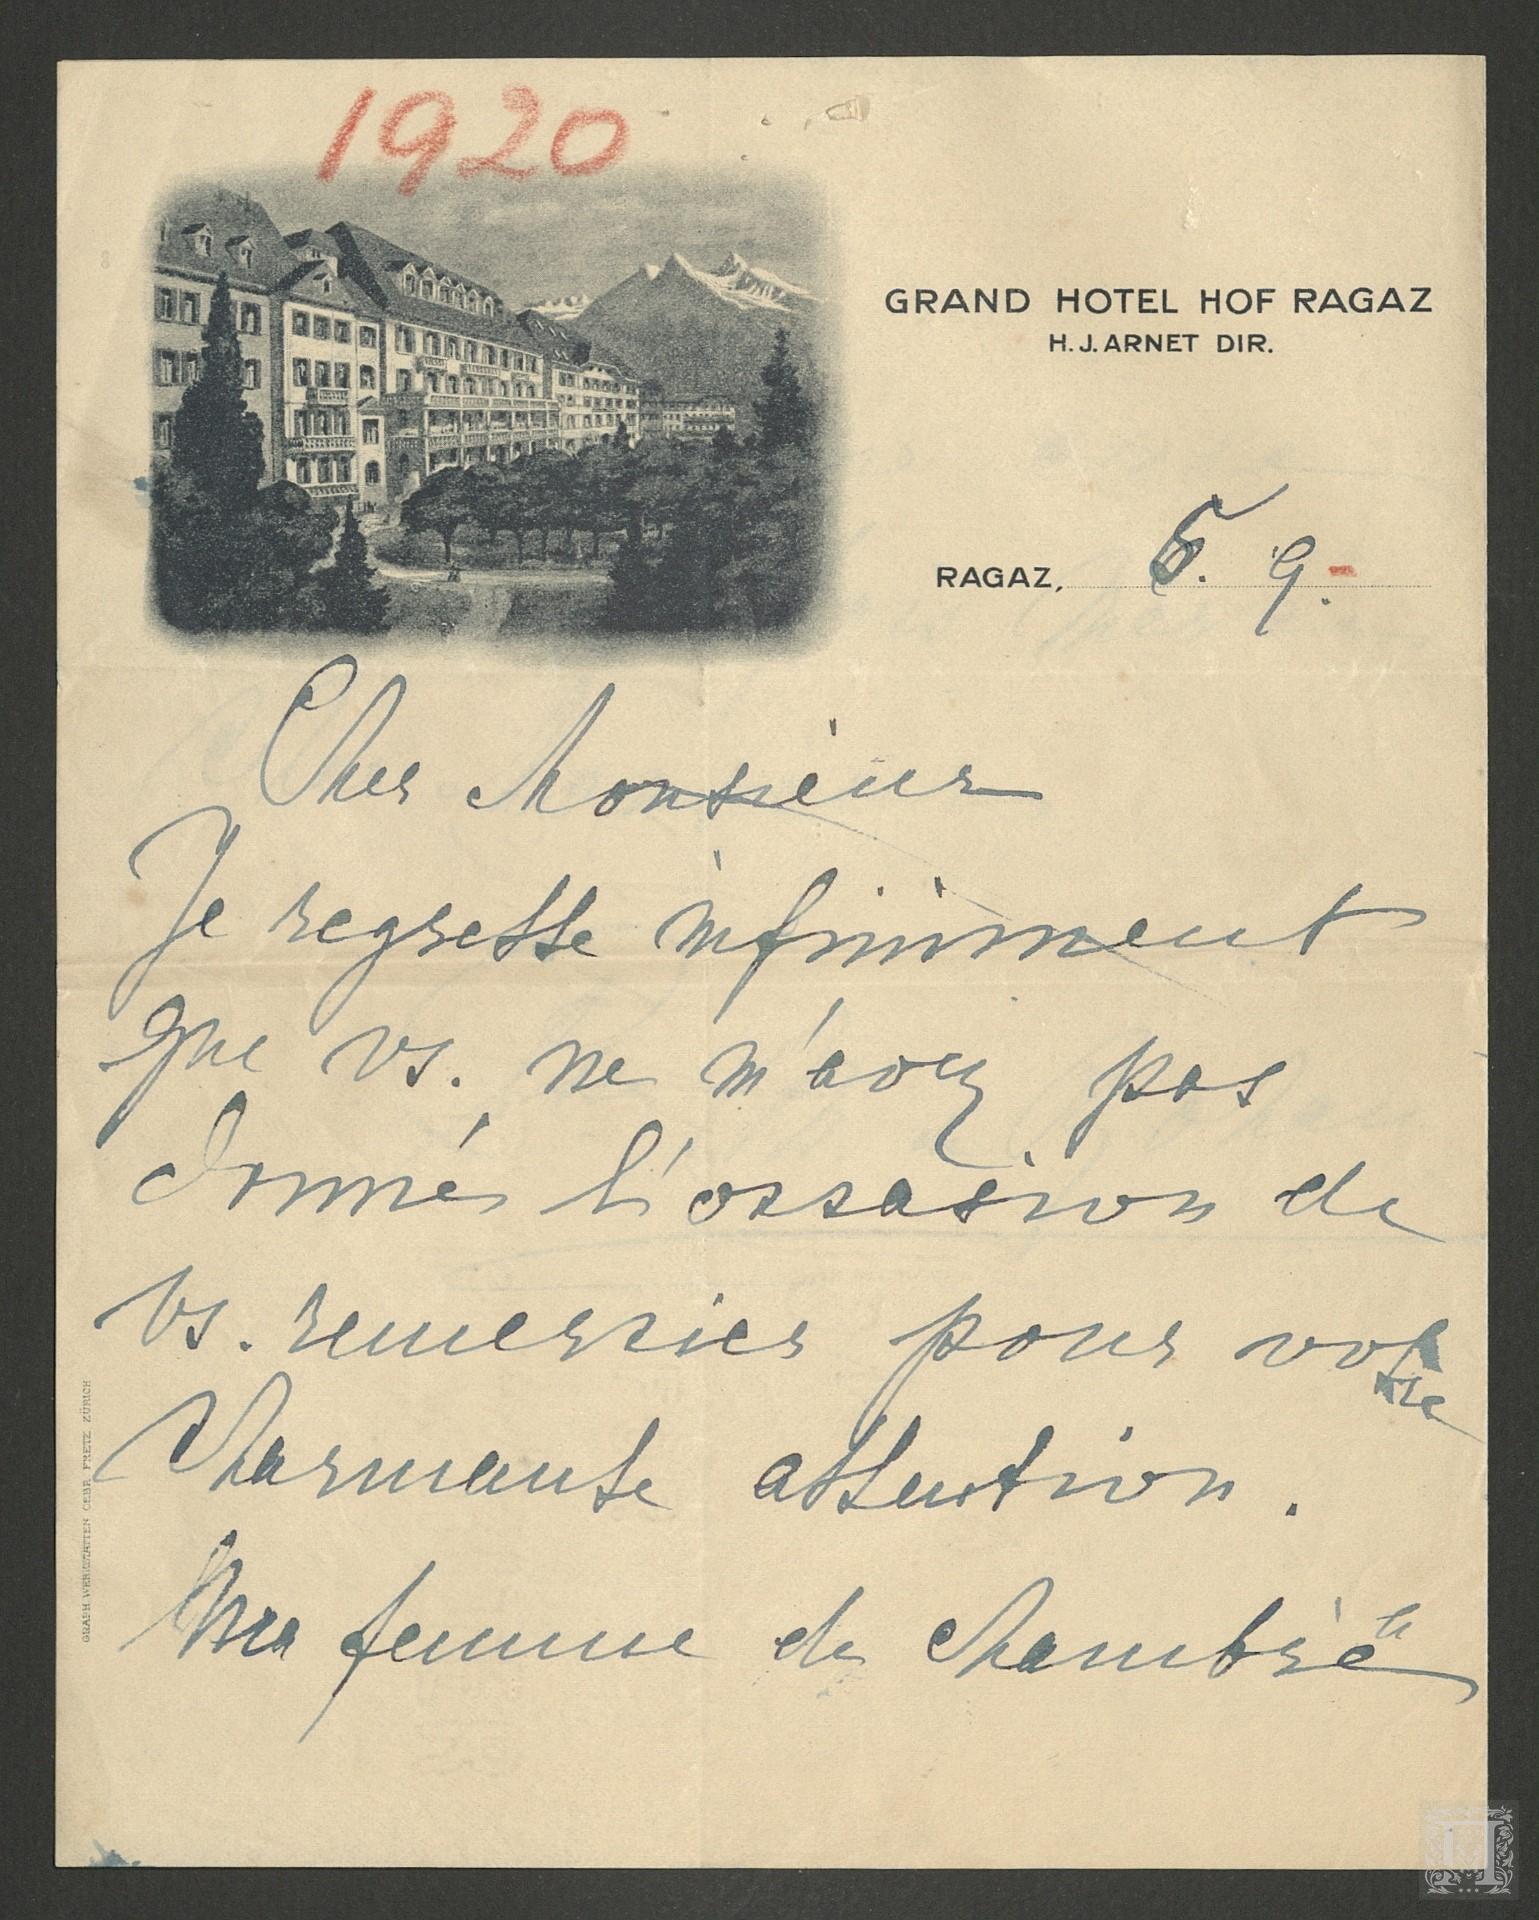 1920
GRAND HOTEL HOF RAGAZ
H. J. ARNET DIR.
RAGAZ, 5. 9.-
Cher Monsieur
Je regrette infiniment
que vs. ne m'avez pas
donné l'occasion de
vs. remercier pour votre
charmante attention.
Ma femme de chambre
GRAPH. WERKSTÄTTEN GEBR. FRETZ ZÜRICH